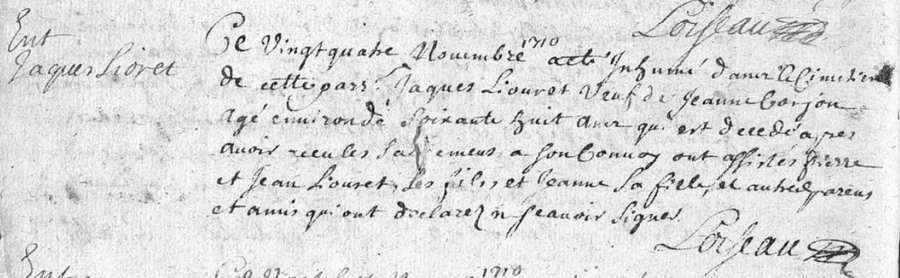 Loiseau
Ent
Jaques Lioret
Ce Vingt quatre Novembre 1710 a eté Inhumé dans le Cimetiere
de cette parr. Jaques Liouret Veuf de Jeanne Gorjon
agé environ de Soixante huit ans qui est decedé apres
avoir receu les Sacremens, a son Convoy ont assistés pierre
et Jean Liouret, Ses fils et Jeanne Sa fille, et autres parens
et amis qui ont declarez n sçavoir signer.
Loiseau
Ent
1710